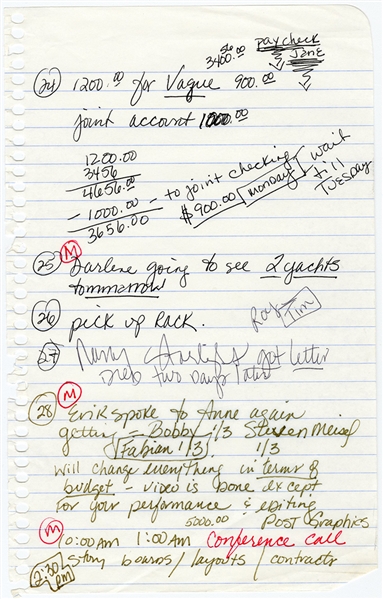 paycheck
3400.00 Jane
24 1200.00 for Vague 900.00
joint account 1000.00
1200.00
3456
4656.00
- 1000.00 - to joint checking
3656.00
$900.00 Monday wait
till
Tuesday
25 M Darlene going to see 2 yachts
tommorrow
26 pick up Rack. Ray Tim
27 Nancy got letter
Died two days later
M
28 Erik spoke to Anne again
getting - Bobby 1/3 Steven Meisel
Fabian 1/3 1/3
will change everything in terms of
budget - video is done except
for your performance & editing
5000.00 Post Graphics
M 10:00AM 1:00AM Conference call
2:30 pm story boards / layouts / contracts